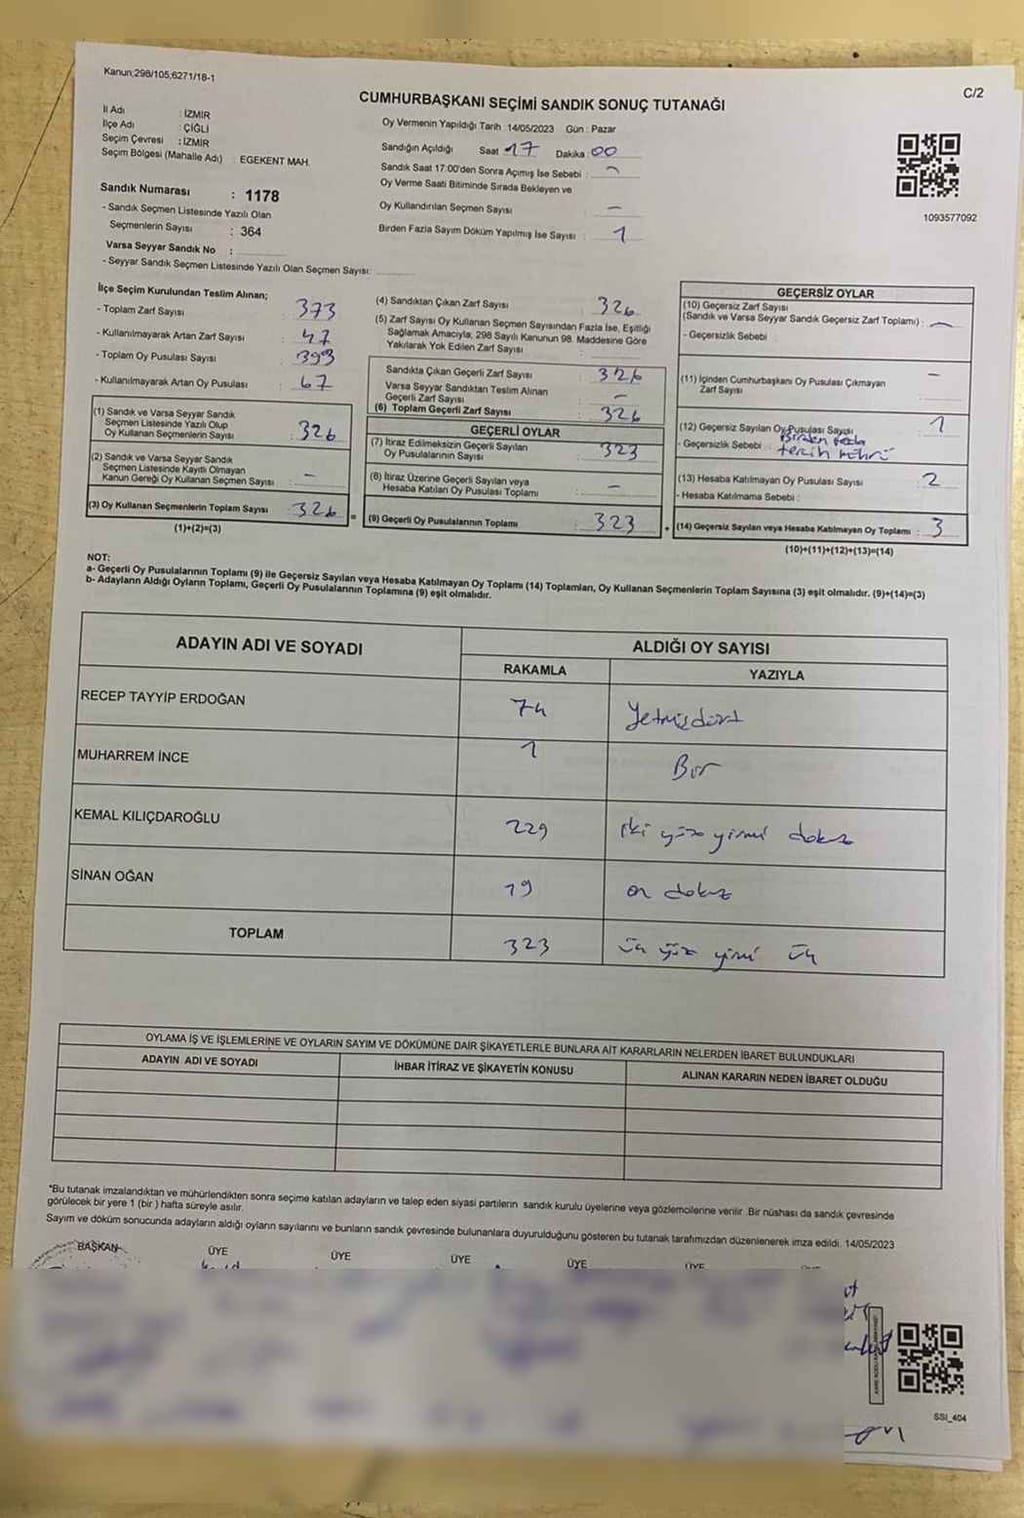 Kanun;298/105,6271/18-1
C/2
CUMHURBAŞKANI SEÇİMİ SANDIK SONUÇ TUTANAĞI
İl Adı : İZMİR
İlçe Adı : ÇİĞLİ
Seçim Çevresi : İZMİR
Seçim Bölgesi (Mahalle Adı) : EGEKENT MAH.
Sandık Numarası : 1178
- Sandık Seçmen Listesinde Yazılı Olan
Seçmenlerin Sayısı : 364
Varsa Seyyar Sandık No :
- Seyyar Sandık Seçmen Listesinde Yazılı Olan Seçmen Sayısı:
Oy Vermenin Yapıldığı Tarih 14/05/2023 Gün : Pazar
Sandığın Açıldığı Saat 17 Dakika 00
Sandık Saat 17:00'den Sonra Açımış İse Sebebi : -
Oy Verme Saati Bitiminde Sırada Bekleyen ve
Oy Kullandırılan Seçmen Sayısı -
Birden Fazla Sayım Döküm Yapılmış İse Sayısı : 1
1093577092
İlçe Seçim Kurulundan Teslim Alınan;
- Toplam Zarf Sayısı : 373
- Kullanılmayarak Artan Zarf Sayısı : 47
- Toplam Oy Pusulası Sayısı : 393
- Kullanılmayarak Artan Oy Pusulası : 67
(1) Sandık ve Varsa Seyyar Sandık
Seçmen Listesinde Yazılı Olup
Oy Kullanan Seçmenlerin Sayısı : 326
(2) Sandık ve Varsa Seyyar Sandık
Seçmen Listesinde Kayıtlı Olmayan
Kanun Gereği Oy Kullanan Seçmen Sayısı : -
(3) Oy Kullanan Seçmenlerin Toplam Sayısı : 326
(1)+(2)=(3)
(4) Sandıktan Çıkan Zarf Sayısı : 326
(5) Zarf Sayısı Oy Kullanan Seçmen Sayısından Fazla İse, Eşitliği
Sağlamak Amacıyla; 298 Sayılı Kanunun 98. Maddesine Göre
Yakılarak Yok Edilen Zarf Sayısı :
Sandıkta Çıkan Geçerli Zarf Sayısı : 326
Varsa Seyyar Sandıktan Teslim Alınan
Geçerli Zarf Sayısı : -
(6) Toplam Geçerli Zarf Sayısı : 326
GEÇERLİ OYLAR
(7) İtiraz Edilmeksizin Geçerli Sayılan
Oy Pusulalarının Sayısı : 323
(8) İtiraz Üzerine Geçerli Sayılan veya
Hesaba Katılan Oy Pusulası Toplamı : -
= (9) Geçerli Oy Pusulalarının Toplamı : 323
GEÇERSİZ OYLAR
(10) Geçersiz Zarf Sayısı
(Sandık ve Varsa Seyyar Sandık Geçersiz Zarf Toplamı) : -
- Geçersizlik Sebebi :
(11) İçinden Cumhurbaşkanı Oy Pusulası Çıkmayan -
Zarf Sayısı :
(12) Geçersiz Sayılan Oy Pusulası Sayısı : 1
- Geçersizlik Sebebi : Birden fazla
tercih mührü
(13) Hesaba Katılmayan Oy Pusulası Sayısı : 2
- Hesaba Katılmama Sebebi :
+ (14) Geçersiz Sayılan veya Hesaba Katılmayan Oy Toplamı : 3
(10)+(11)+(12)+(13)=(14)
NOT:
a- Geçerli Oy Pusulalarının Toplamı (9) ile Geçersiz Sayılan veya Hesaba Katılmayan Oy Toplamı (14) Toplamları, Oy Kullanan Seçmenlerin Toplam Sayısına (3) eşit olmalıdır. (9)+(14)=(3)
b- Adayların Aldığı Oyların Toplamı, Geçerli Oy Pusulalarının Toplamına (9) eşit olmalıdır.
ADAYIN ADI VE SOYADI ALDIĞI OY SAYISI
RAKAMLA YAZIYLA
RECEP TAYYİP ERDOĞAN 74 Yetmişdört
MUHARREM İNCE 1 Bir
KEMAL KILIÇDAROĞLU 229 iki yüz yirmi dokuz
SİNAN OĞAN 19 on dokuz
TOPLAM 323 üç yüz yirmi üç
OYLAMA İŞ VE İŞLEMLERİNE VE OYLARIN SAYIM VE DÖKÜMÜNE DAİR ŞİKAYETLERLE BUNLARA AİT KARARLARIN NELERDEN İBARET BULUNDUKLARI
ADAYIN ADI VE SOYADI İHBAR İTİRAZ VE ŞİKAYETİN KONUSU ALINAN KARARIN NEDEN İBARET OLDUĞU
*Bu tutanak imzalandıktan ve mühürlendikten sonra seçime katılan adayların ve talep eden siyasi partilerin sandık kurulu üyelerine veya gözlemcilerine verilir. Bir nüshası da sandık çevresinde
görülecek bir yere 1 (bir ) hafta süreyle asılır.
Sayım ve döküm sonucunda adayların aldığı oyların sayılarını ve bunların sandık çevresinde bulunanlara duyurulduğunu gösteren bu tutanak tarafımızdan düzenlenerek imza edildi. 14/05/2023
BAŞKAN ÜYE ÜYE ÜYE ÜYE ÜYE
SSI_404